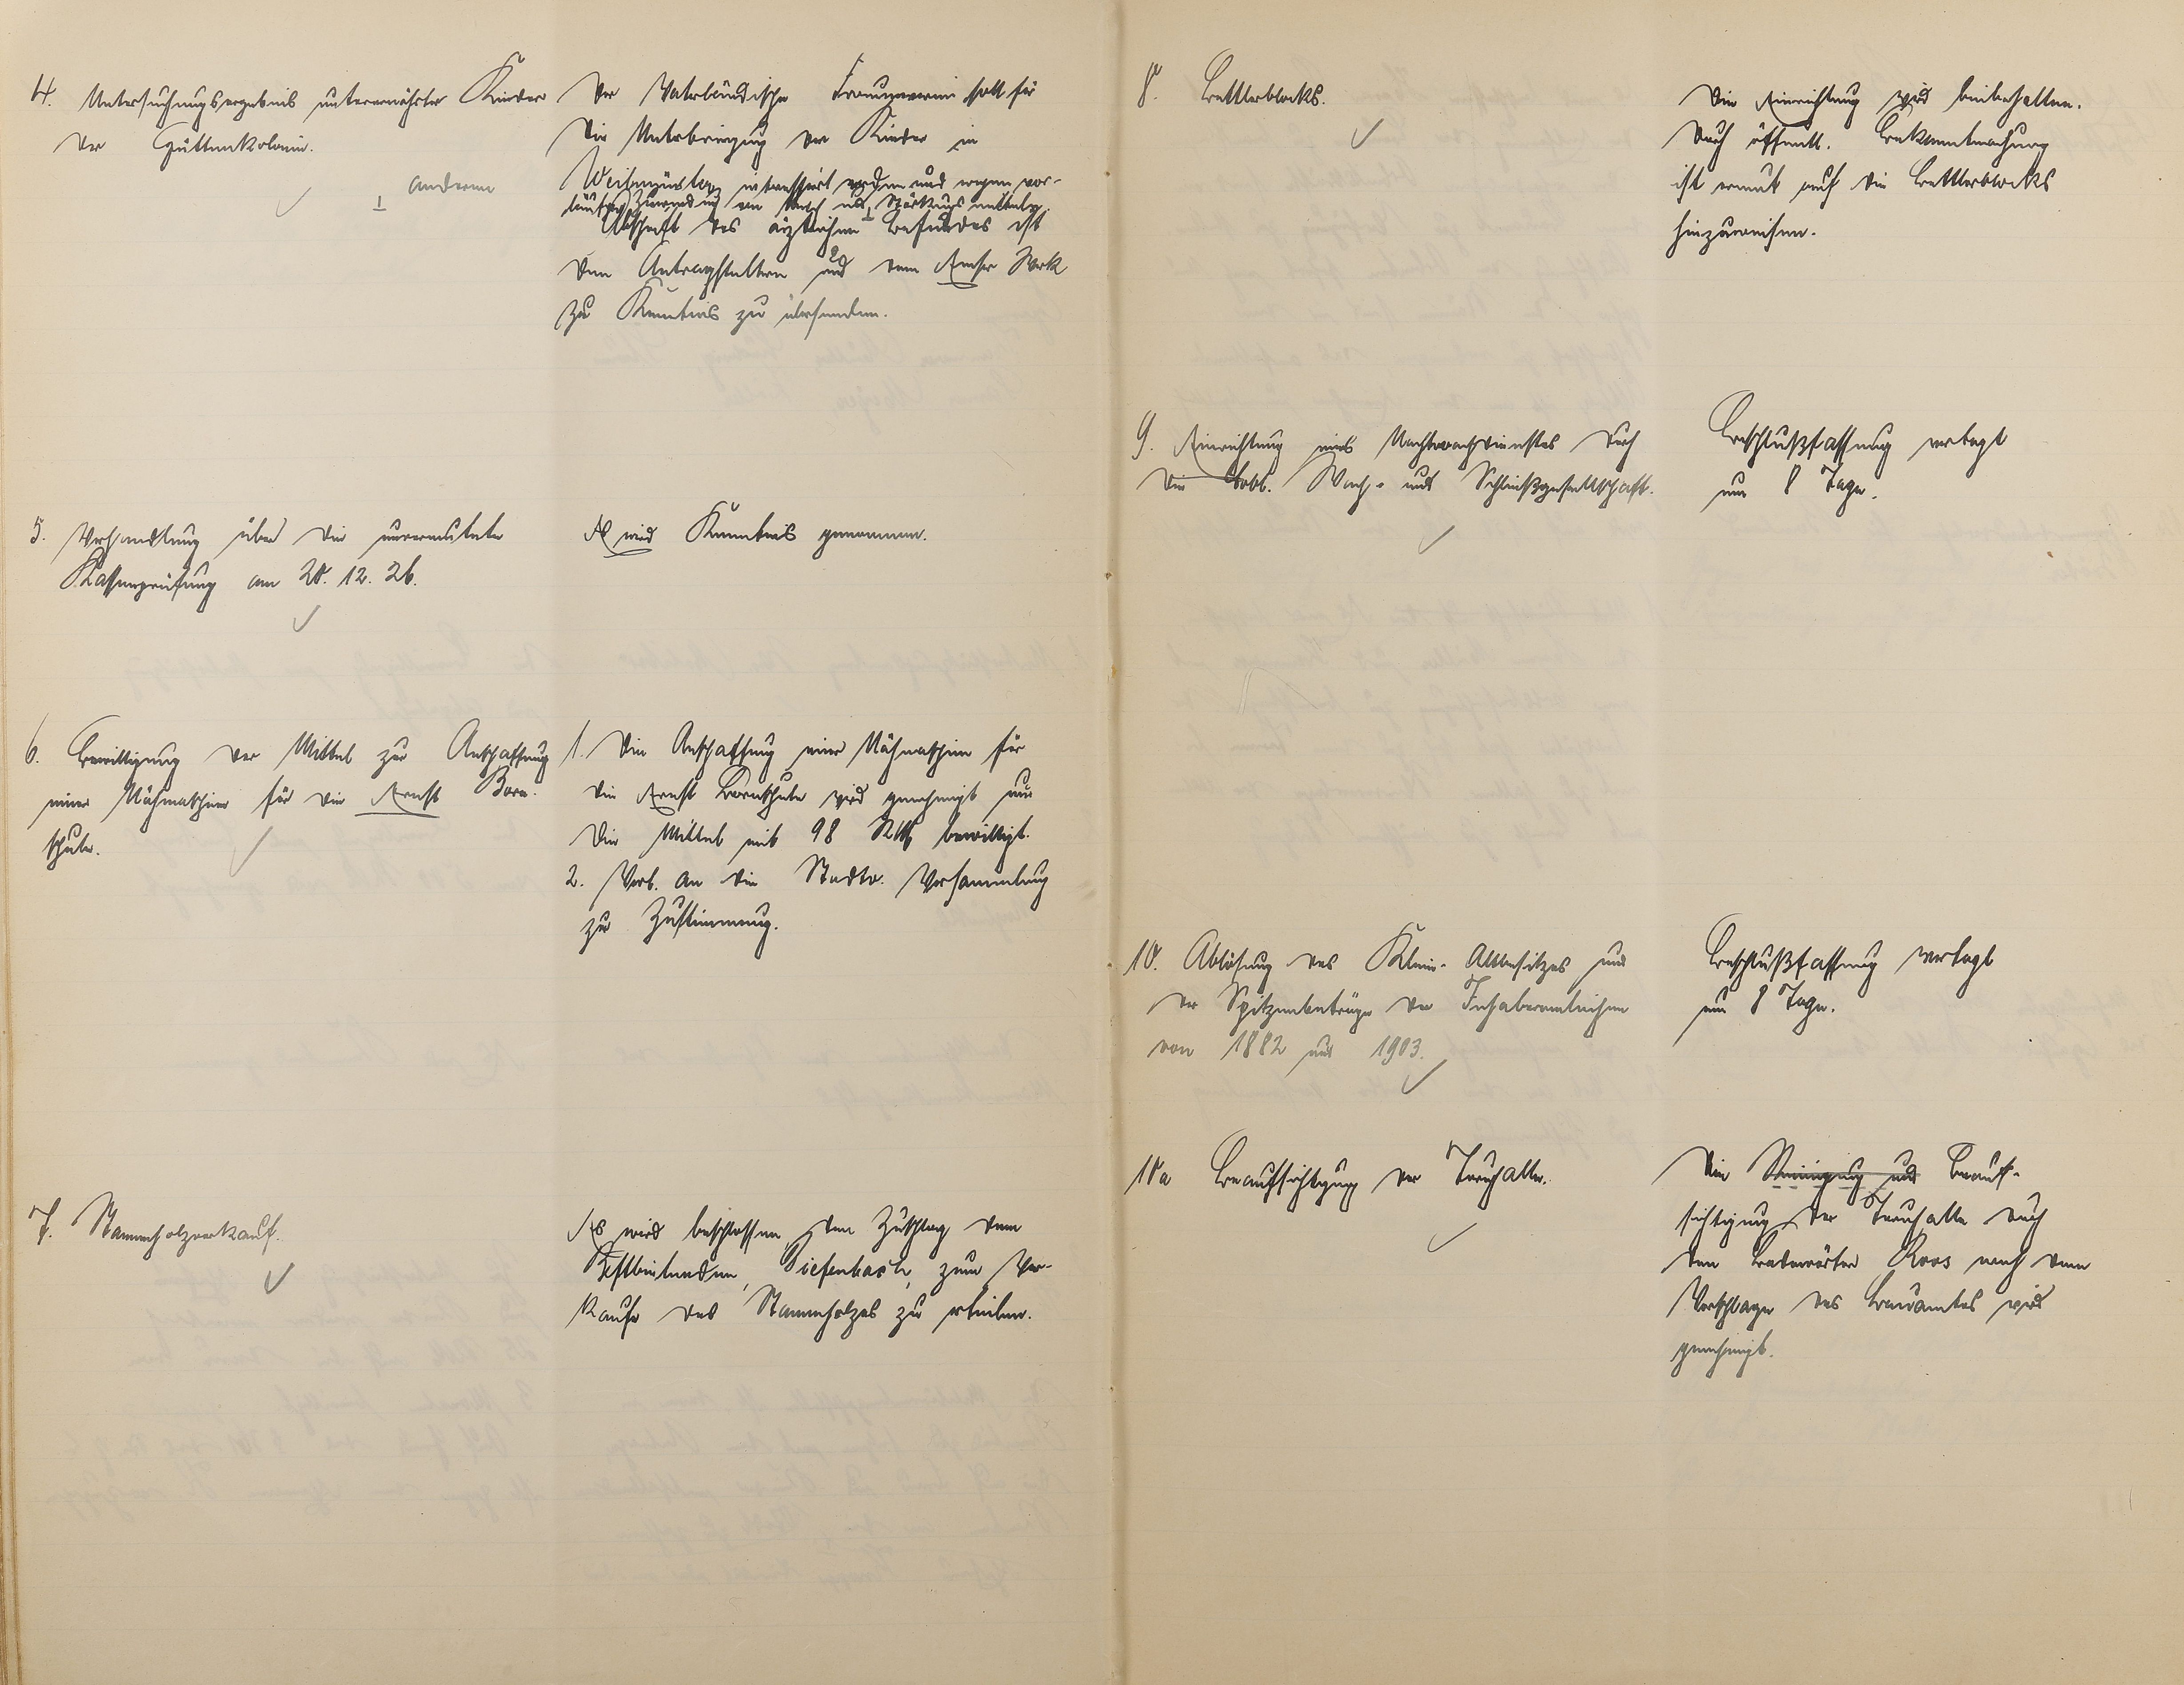 4. Untersuchungsergebnis unterernährter Kinder
der Hüttenkolonie.
⊥ anderen
Der Vaterländische Frauenverein soll für
die Unterbringung der Kinder in
Weilmünster interessiert werden und wegen vor-
läufiger Zuwendung von Milch und ⊥ Stärkungsmitteln.
Abschrift des ärztlichen Befundes ist
den Antragstellern und dem Emser Werk
zur Kenntnis zu übersenden.
5. Verhandlung über die unvermutete
Kassenprüfung am 20. 12. 26.
Es wird Kenntnis genommen.
6. Bewilligung der Mittel zur Anschaffung
einer Nähmaschine für die Ernst Born-
schule.
1. Die Anschaffung einer Nähmaschine für
die Ernst Bornschule wird genehmigt und
die Mittel mit 98 RM bewilligt.
2. Vorl. an die Stadtv. Versammlung
zur Zustimmung.
7. Stammholzverkauf.
Es wird beschlossen, den Zuschlag dem
Höchstbietenden, Diefenbach, zum Ver-
kaufe des Stammholzes zu erteilen.
8. Bettlerblocks.
Die Einrichtung wird beibehalten.
Durch öffentl. Bekanntmachung
ist erneut auf die Bettlerblocks
hinzuweisen.
9. Einrichtung eines Nachtwachdienstes durch
die Cobl. Wach- und Schließgesellschaft.
Beschlußfassung vertagt
um 8 Tage.
10. Ablösung des Klein-Altbesitzes und
der Spitzenbeträge der Inhaberanleihen
von 1882 und 1903.
Beschlußfassung vertagt
um 8 Tage.
10a Beaufsichtigung der Turnhalle.
Die Reinigung und Beauf-
sichtigung der Turnhalle durch
den Badewärter Roos nach dem
Vorschlage des Bauamtes wird
genehmigt.